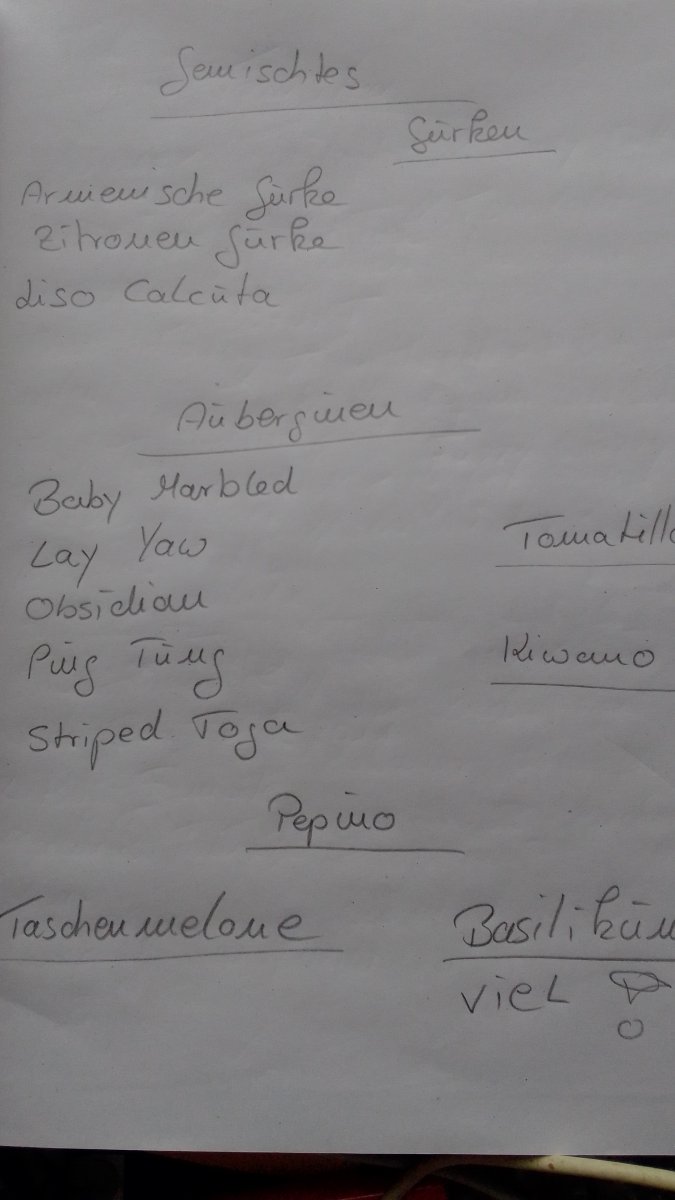 Gemischtes
Gurken
Armenische Gurke
Zitronen Gurke
diso Calcuta
Auberginen
Baby Marbled
Lay Yaw
Obsidian
Ping Tung
Striped Toga
Tomatillo
Kiwano
Pepino
Taschenmelone
Basilikum
viel !